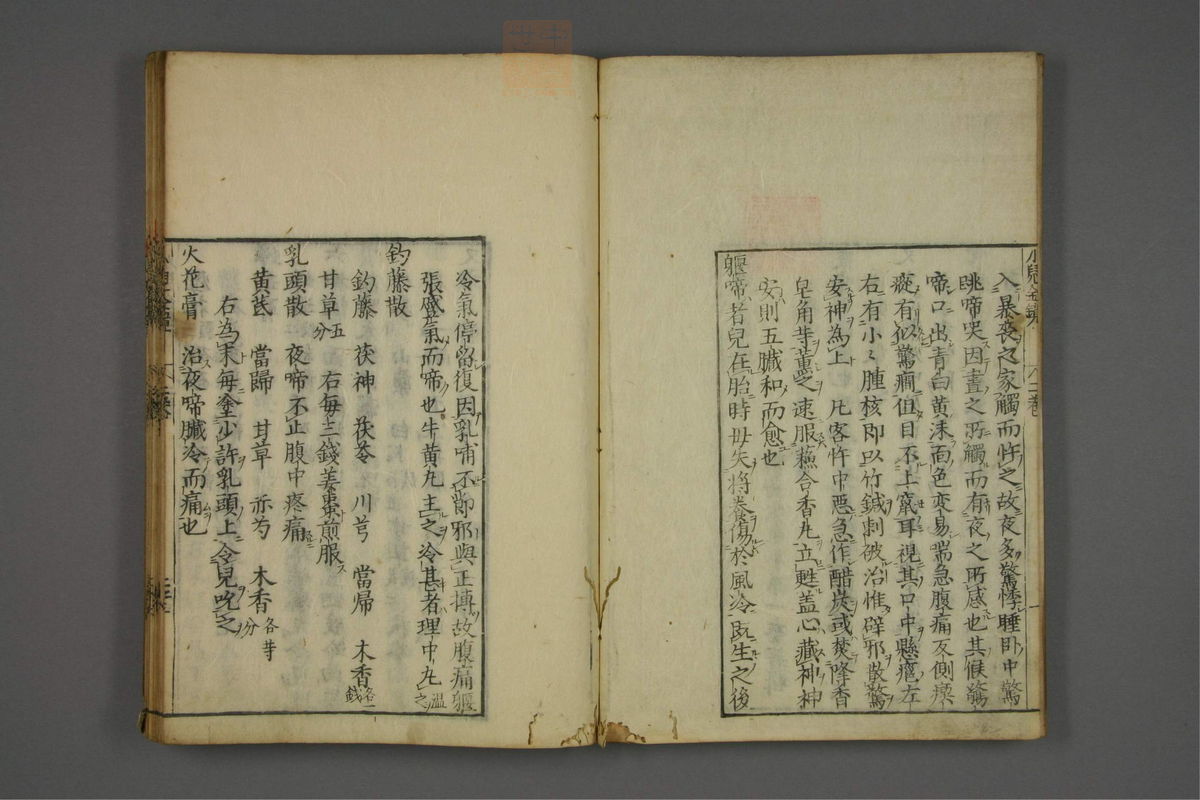 入暴喪之家觸而忤之故夜多驚悸睡卧中驚
跳啼哭因晝之所觸而有夜之所感也其候驚
啼口出青白黄沫面色变易喘急腹痛反側瘈
瘲有似驚癇但目不上竄耳視其口中懸癰左
右有小〻腫核即以竹鍼刺破治惟辟邪散驚
安神為上 凡客忤中悪急作醋炭或焚降香
皂角等薫之速服蘓合香丸立甦盖心藏神神
安則五臓和而愈也
軀啼者兒在胎時毋失将養傷於風冷既生之後
冷氣停留復因乳哺不節邪與正摶故腹痛軀
張蹙氣而啼也牛黄丸主之冷甚者理中丸温之
釣藤散
釣藤 茯神 茯苓 川芎 當歸 木香各一錢
甘草五分 右毎三錢姜棗煎服
乳頭散 夜啼不止腹中疼痛
黄芪 當歸 甘草 赤芍 木香各等分
右為末毎塗少許乳頭上令兒吮之
火花膏 治夜啼臓冷而痛也